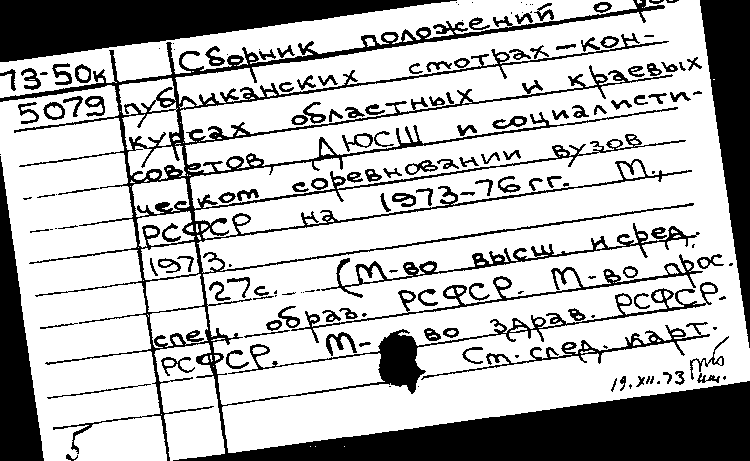 73-50к Сборник положений о рес-
5079 публиканских смотрах-кон-
курсах областных и краевых
советов, ДЮСШ и социалисти-
ческом соревновании вузов
РСФСР на 1973-76 гг. М.,
1973.
27с. (М-во высш. и сред.
спец. образ. РСФСР. М-во прос.
РСФСР. М-во здрав. РСФСР.
Ст. след. карт.
19.XII.73
5